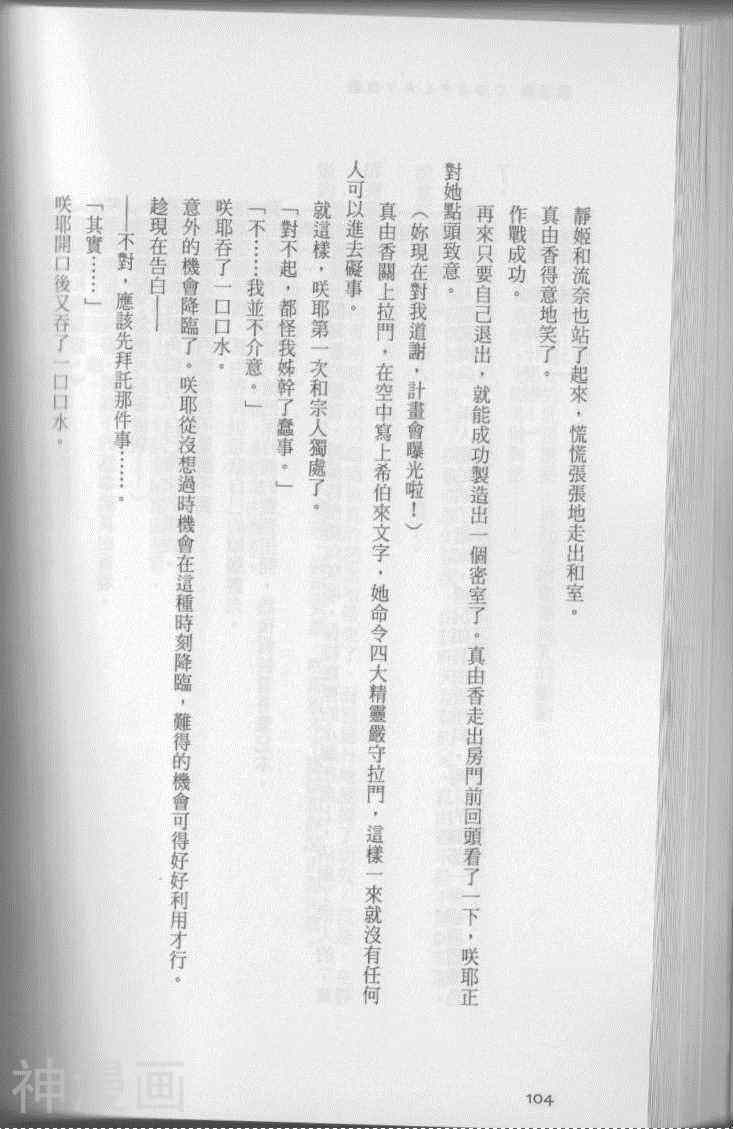 靜姬和流奈也站了起來，慌慌張張地走出和室。
真由香得意地笑了。
作戰成功。
再來只要自己退出，就能成功製造出一個密室了。真由香走出房門前回頭看了一下，咲耶正
對她點頭致意。
（妳現在對我道謝，計畫會曝光啦！）
真由香關上拉門，在空中寫上希伯來文字，她命令四大精靈嚴守拉門，這樣一來就沒有任何
人可以進去礙事。
就這樣，咲耶第一次和宗人獨處了。
「對不起，都怪我姊幹了蠢事。」
「不……我並不介意。」
咲耶吞了一口口水。
意外的機會降臨了。咲耶從沒想過時機會在這種時刻降臨，難得的機會可得好好利用才行。
趁現在告白——
——不對，應該先拜託那件事……。
「其實……」
咲耶開口後又吞了一口口水。
104
神漫画